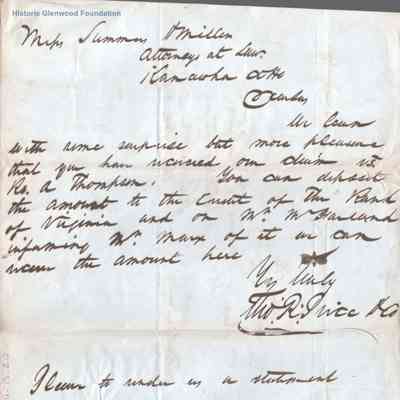 Historic Glenwood Foundation
Mess Summers & Miller
Attorneys at Law
Kanawha CHo
We learn
with some surprise but more pleasure
that you have received our claim vs
A Thompson. You can deposit
the amount to the Credit of the Bank
of Virginia and on Mr. McFarland
informing Mr. Marx of it we can
receive the amount here
Yrs truly
Tho. R. Price & Co
Please to render us a statement